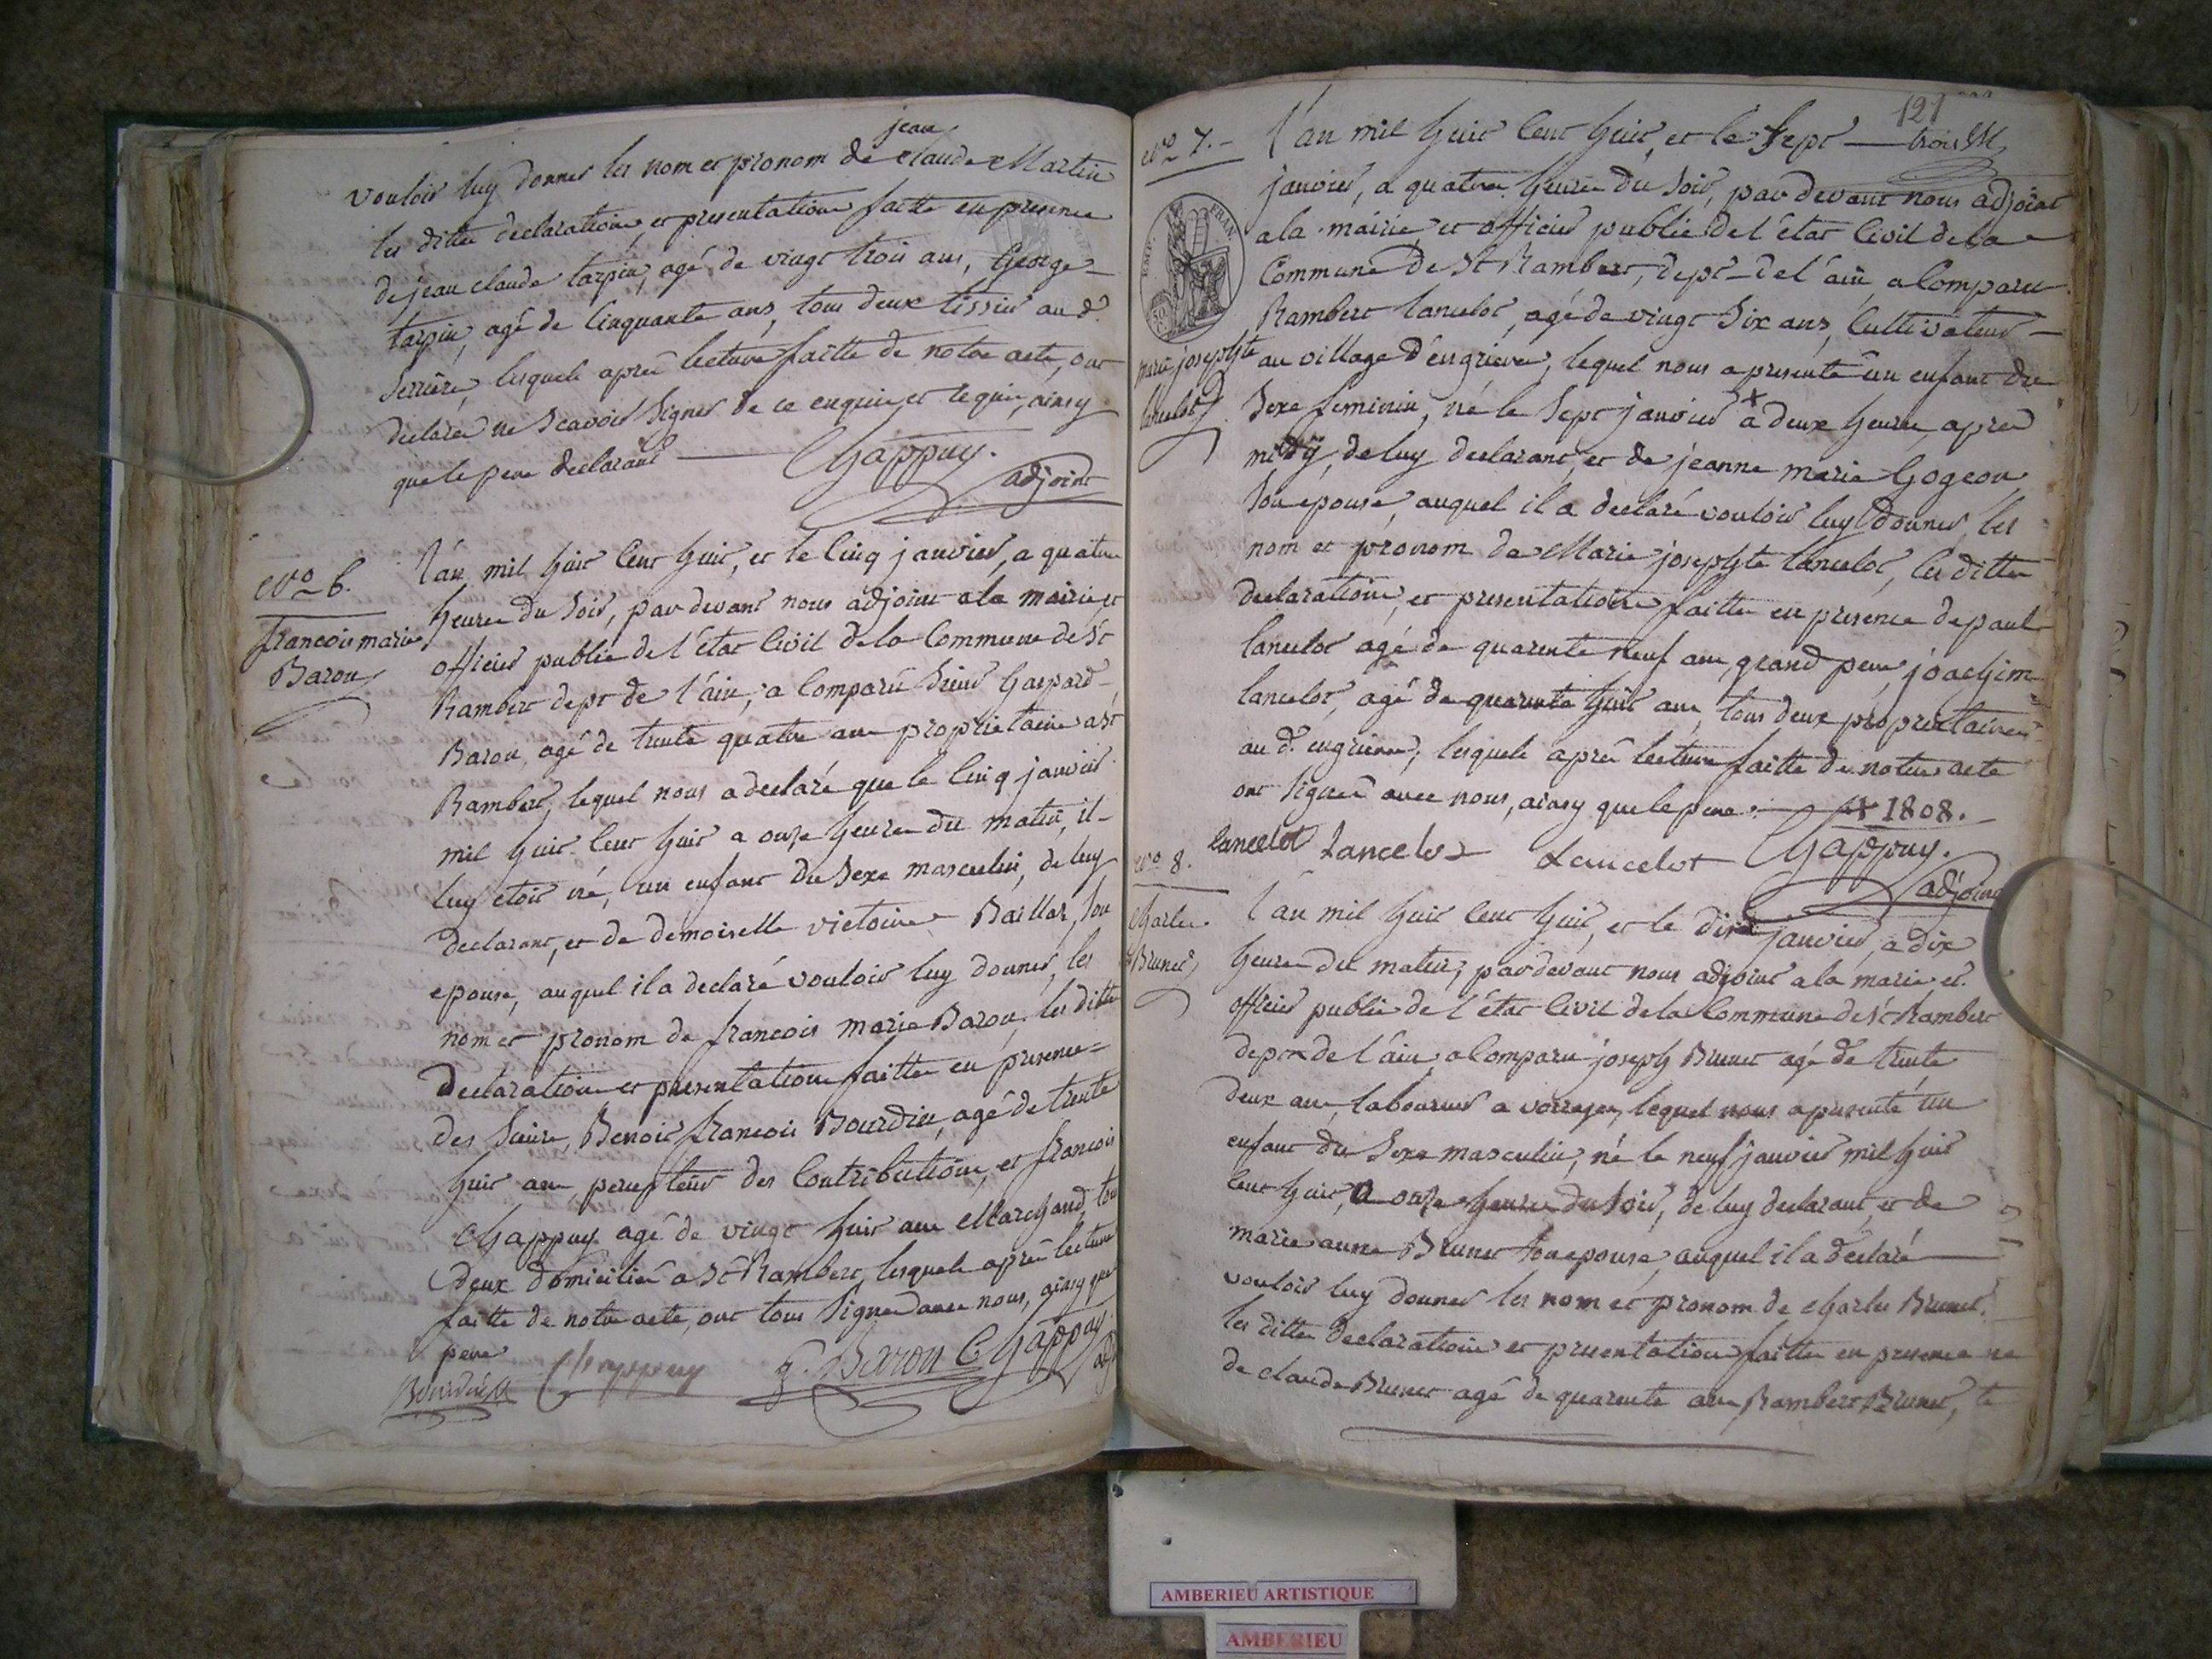 jean
vouloir luy donner les nom et pronom de claude Martin
les dittes declaration et presentation faitte en presence
de jean claude tarpin, agé de vingt trois ans, George
tarpin, agé de Cinquante ans, tous deux tissier au d.
Serriere, lesquels aprês lecture faitte de notre acte, ont
declaré ne Scavoir Signer de ce enquis et requis, ainsy
que le pere declarant Chappuy.
adjoint
N.o 6.
francois marie
Baron
L'an mil huit Cent huit, et le Cinq janvier, a quatre
heures du Soir, par devant nous adjoint a la mairie et
officier public de l'état Civil de la Commune de St
Rambert dept de l'ain, a Comparu Sieur Gaspard
Baron, agé de trente quatre ans proprietaire a St
Rambert, lequel nous a declaré que le Cinq janvier
mil huit Cent huit a onze heures du matin, il
luy etoit né, un enfant du Sexe masculin, de luy
declarant, et de demoiselle victoire Baillat, Son
epouse, auquel il a declaré vouloir luy donner, les
nom et pronom de francois marie Baron, les dittes
declaration et presentation faitte en presence
des Sieurs, Benoit francois Bourdin, agé de trente
huit ans, percepteur des Contributions, et francois
Chappuy agé de vingt huit ans Marchand, tous
deux domicilié a St Rambert, lesquels aprês lecture
faitte de notre acte, ont tous Signé avec nous, ainsy que
pere
Bourdin Chappuy G. Baron Chappuy
adj
121
N.o 7.
L'an mil huit Cent huit, et le Sept trois M
janvier, a quatre heures du Soir, par devant nous adjoint
a la mairie, et officier public de l'état Civil de la
Commune de St Rambert, dept de l'ain, a Comparu
Rambert lancelot, agé de vingt Six ans, Cultivateur
marie josephte
lancelot
au village d'engrieve, lequel nous a presenté un enfant du
Sexe feminin, né le Sept janvier + a deux heures aprês
midÿ, de luy declarant, et de jeanne marie Gogeon
Son epouse, auquel il a declaré vouloir luy donner, les
nom et pronom de Marie josephte lancelot, les dittes
declaration, et presentation faitte en presence de paul
lancelot agé de quarente neuf ans, grand pere, joachim
lancelot, agé de quarente huit ans, tous deux proprietaires
au d. engrieve, lesquels aprês lecture faitte de notre acte
ont Signé avec nous, ainsy que le pere. + 1808.
lancelot Lancelot Lancelot Chappuy.
adjoint
N.o 8.
Charles
Brunet
L'an mil huit Cent huit, et le dix janvier, a dix
heures du matin, par devant nous adjoint a la marie et
officier public de l'état Civil de la Commune de St Rambert
dept de l'ain, a Comparu joseph Brunet agé de trente
deux ans, laboureur a vorages, lequel nous a presenté un
enfant du Sexe masculin, né le neuf janvier mil huit
Cent huit, a onze heures du Soir, de luy declarant, et de
marie anne Brunet Son epouse, auquel il a declaré
vouloir luy donner les nom et pronom de Charles Brunet.
les dittes declaration et presentation faittes en presence
de claude Brunet agé de quarente ans, Rambert Brunet,
AMBERIEU ARTISTIQUE
AMBERIEU